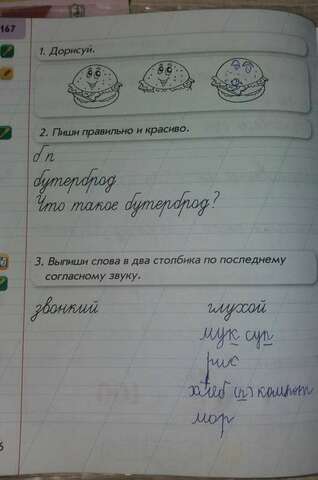 167
1. Дорисуй.
2. Пиши правильно и красиво.
б п
бутерброд
Что такое бутерброд?
3. Выпиши слова в два столбика по последнему
согласному звуку.
звонкий глухой
мук суп
рис
хлеб (п) компот
мор
6